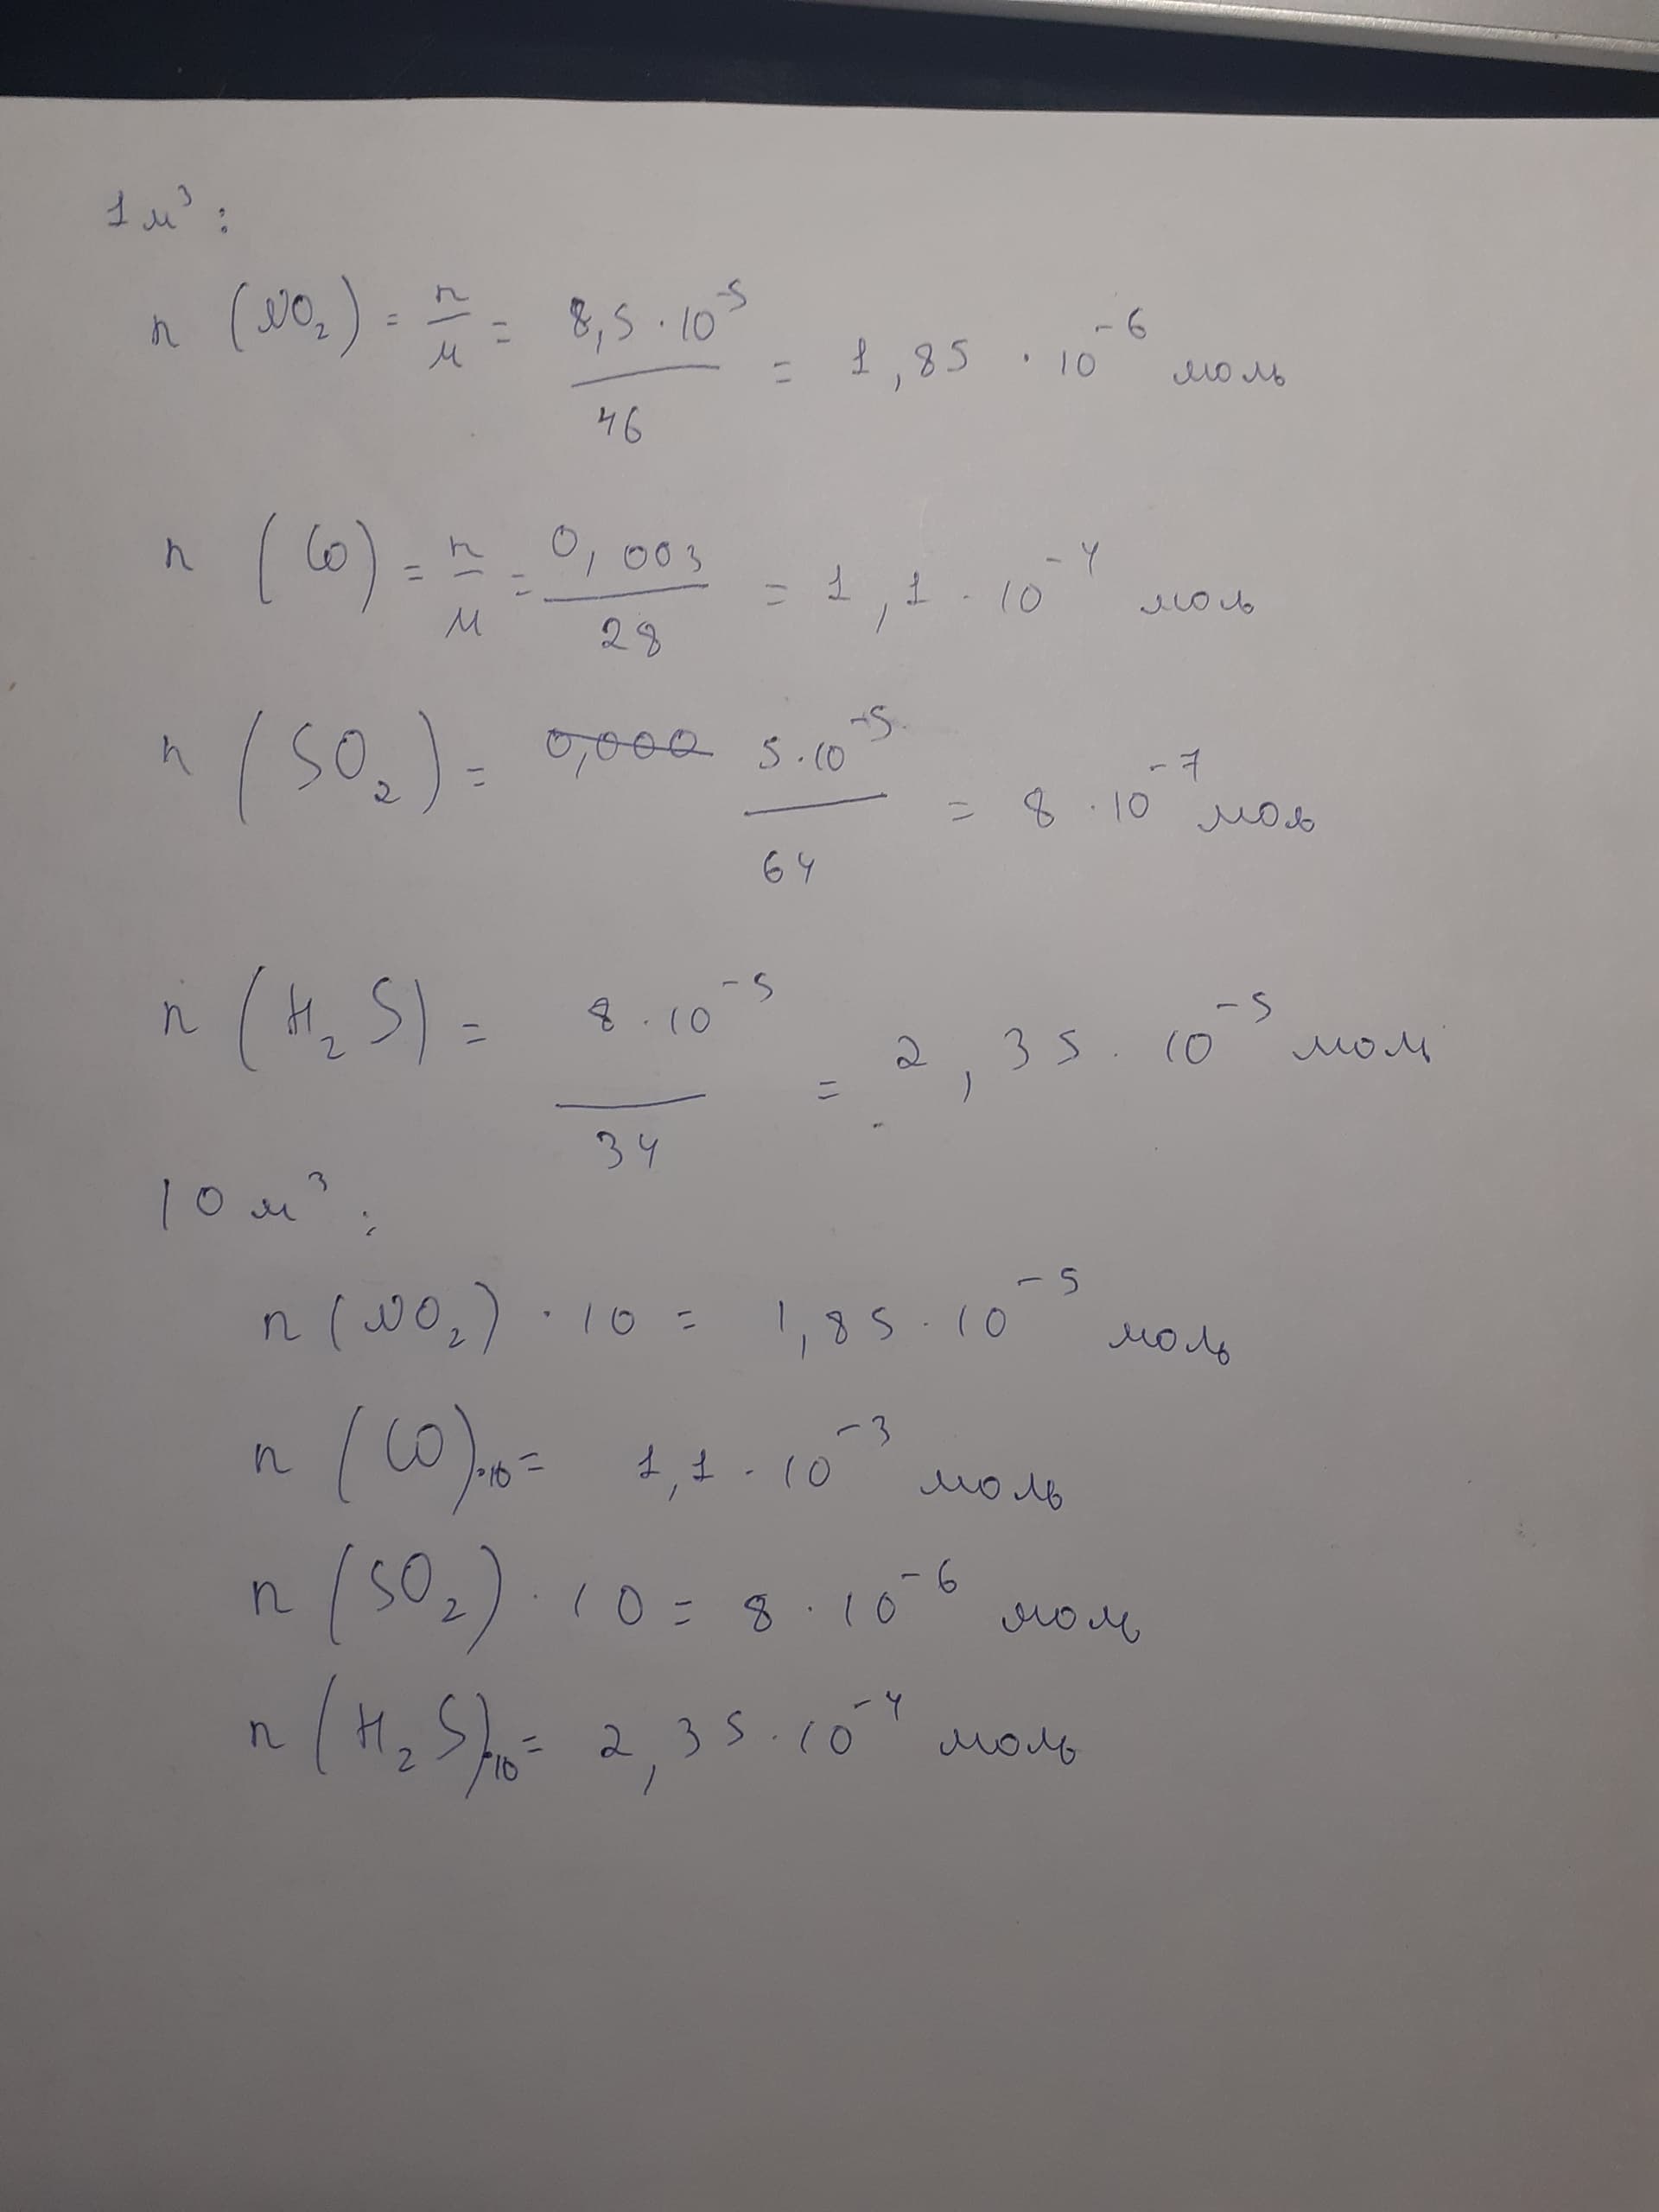 1 м³ :
n (NO₂) = n/м = 8,5 · 10⁻⁵/46 = 1,85 · 10⁻⁶ моль
n (CO) = n/м = 0,003/28 = 1,1 · 10⁻⁴ моль
n (SO₂) = 0,000 5 · 10⁻⁵/64 = 8 · 10⁻⁷ моль
n (H₂S) = 8 · 10⁻⁵/34 = 2,35 · 10⁻⁵ моль
10 м³ :
n (NO₂) · 10 = 1,85 · 10⁻⁵ моль
n (CO) · 10 = 1,1 · 10⁻³ моль
n (SO₂) · 10 = 8 · 10⁻⁶ моль
n (H₂S) · 10 = 2,35 · 10⁻⁴ моль